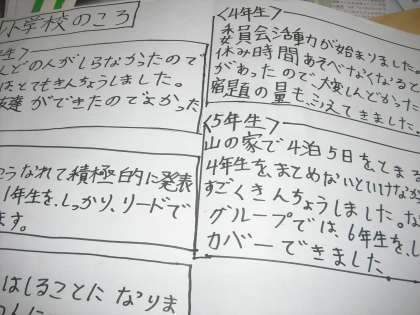 小学校のころ
年生〉
んどの人がしらなかったので
はとてもきんちょうしました。
友達ができたのでよかった
うなれて積極的に発表
1年生を、しっかり、リードで
ます。
はしることになりま
〈4年生〉
委員会活動が始まりました。
休み時間あそべなくなると
があったので、大変しんどかった
宿題の量も、ふえてきました
〈5年生〉
山の家で4泊5日をとまる
4年生を、まとめないといけな
すごくきんちょうしました。な
グループでは、6年生を、し
カバーできました。